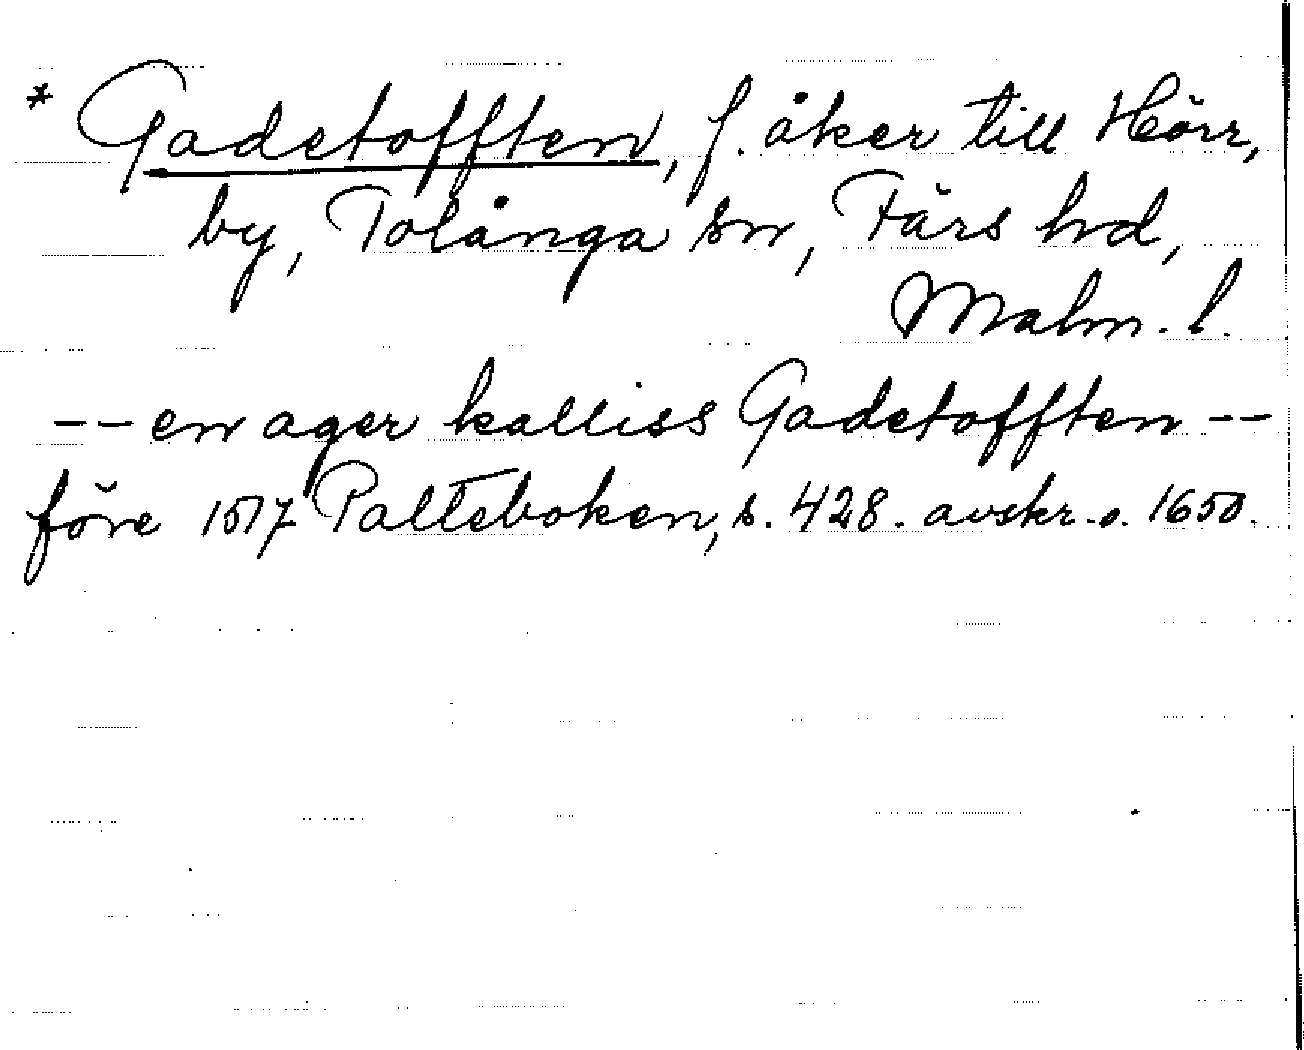 * Gadetofften, f. åker till Hörr,
by, Tolånga sn, Färs hd,
Malm. l.
-- en ager kalliss Gadetofften --
före 1517 Palteboken, s. 428. avskr. o. 1650.